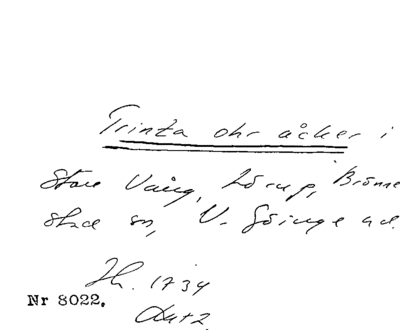 Trinta ohr åcker i
Store Vång, Lörup, Brönne
stad sn, V. Göinge hd.
Jh. 1734
Nr 8022.